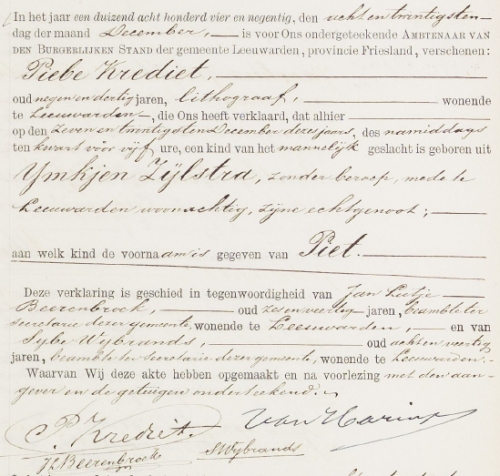 In het jaar een duizend acht honderd vier en negentig, den acht en twintigsten
dag der maand December, is voor Ons ondergeteekende Ambtenaar van
den Burgerlijken Stand der gemeente Leeuwarden, provincie Friesland, verschenen:
Piebe Krediet,
oud negen en dertig jaren, lithograaf, wonende
te Leeuwarden, die Ons heeft verklaard, dat alhier
op den zeven en twintigsten December dezes jaars, des namiddags
ten kwart vóór vijf ure, een kind van het mannelijk geslacht is geboren uit
Ymkjen Zijlstra, zonder beroep, mede te
Leeuwarden woonachtig, zijne echtgenoot;
aan welk kind de voornaam is gegeven van Piet.
Deze verklaring is geschied in tegenwoordigheid van Jan
Beerenbroek, oud zes en veertig jaren, beambte ter
secretarie dezer gemeente, wonende te Leeuwarden, en van
Sybe Wybrands, oud acht en veertig
jaren, beambte ter secretarie dezer gemeente, wonende te Leeuwarden.
Waarvan Wij deze akte hebben opgemaakt en na voorlezing met den aan-
gever en de getuigen onderteekend.
P. Krediet van Harinx
Beerenbroek SWybrands